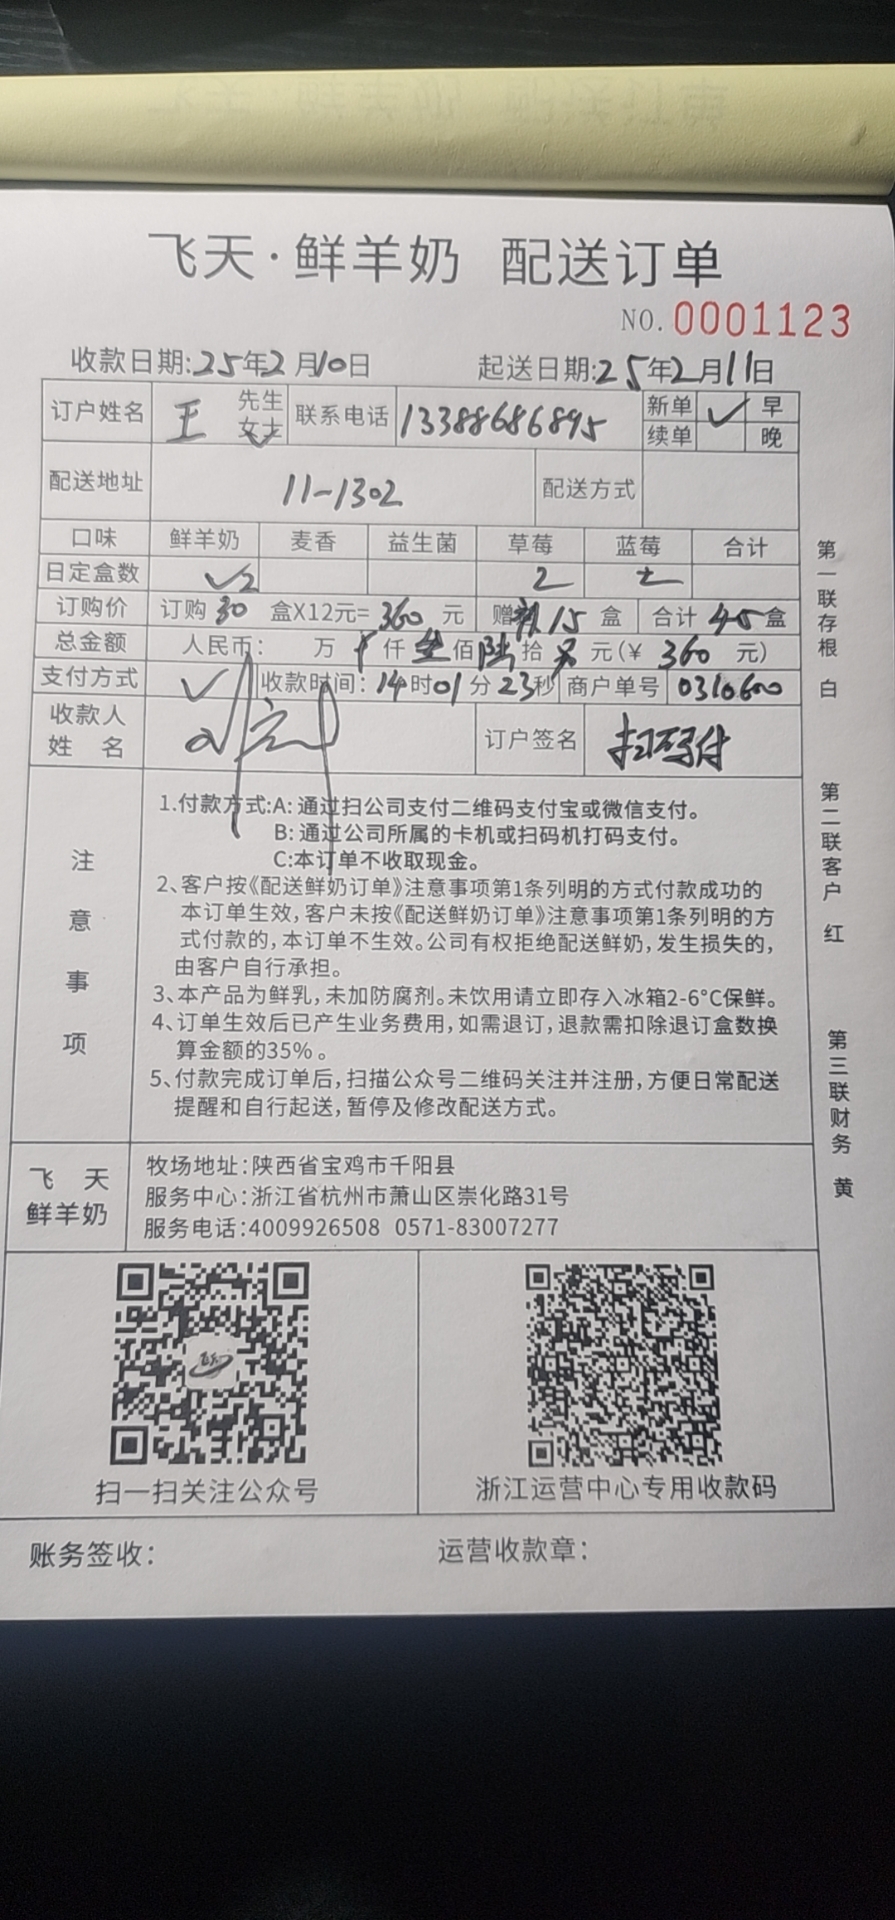 飞天·鲜羊奶 配送订单
NO. 0001123
收款日期:25年2月10日 起送日期:25年2月11日
订户姓名 王 先生 女士 联系电话 13388686895 新单 ✓ 早
续单 晚
配送地址 11-1302 配送方式
口味 鲜羊奶 麦香 益生菌 草莓 蓝莓 合计
日定盒数 ✓2 2
订购价 订购 30 盒X12元= 360 元 赠 15 盒 合计 45 盒
总金额 人民币: 万 仟 佰 陆 拾 元(¥ 360 元)
支付方式 ✓ 收款时间: 14时01分23秒 商户单号 0310600
收款人
姓 名 订户签名 扫码付
注意事项
1.付款方式:A: 通过扫公司支付二维码支付宝或微信支付。
B: 通过公司所属的卡机或扫码机打码支付。
C:本订单不收取现金。
2、客户按《配送鲜奶订单》注意事项第1条列明的方式付款成功的
本订单生效,客户未按《配送鲜奶订单》注意事项第1条列明的方
式付款的,本订单不生效。公司有权拒绝配送鲜奶,发生损失的,
由客户自行承担。
3、本产品为鲜乳,未加防腐剂。未饮用请立即存入冰箱2-6°C保鲜。
4、订单生效后已产生业务费用,如需退订,退款需扣除退订盒数换
算金额的35%。
5、付款完成订单后,扫描公众号二维码关注并注册,方便日常配送
提醒和自行起送,暂停及修改配送方式。
飞 天
鲜羊奶
牧场地址:陕西省宝鸡市千阳县
服务中心:浙江省杭州市萧山区崇化路31号
服务电话:4009926508 0571-83007277
扫一扫关注公众号 浙江运营中心专用收款码
账务签收: 运营收款章:
第一联存根 白
第二联客户 红
第三联财务 黄